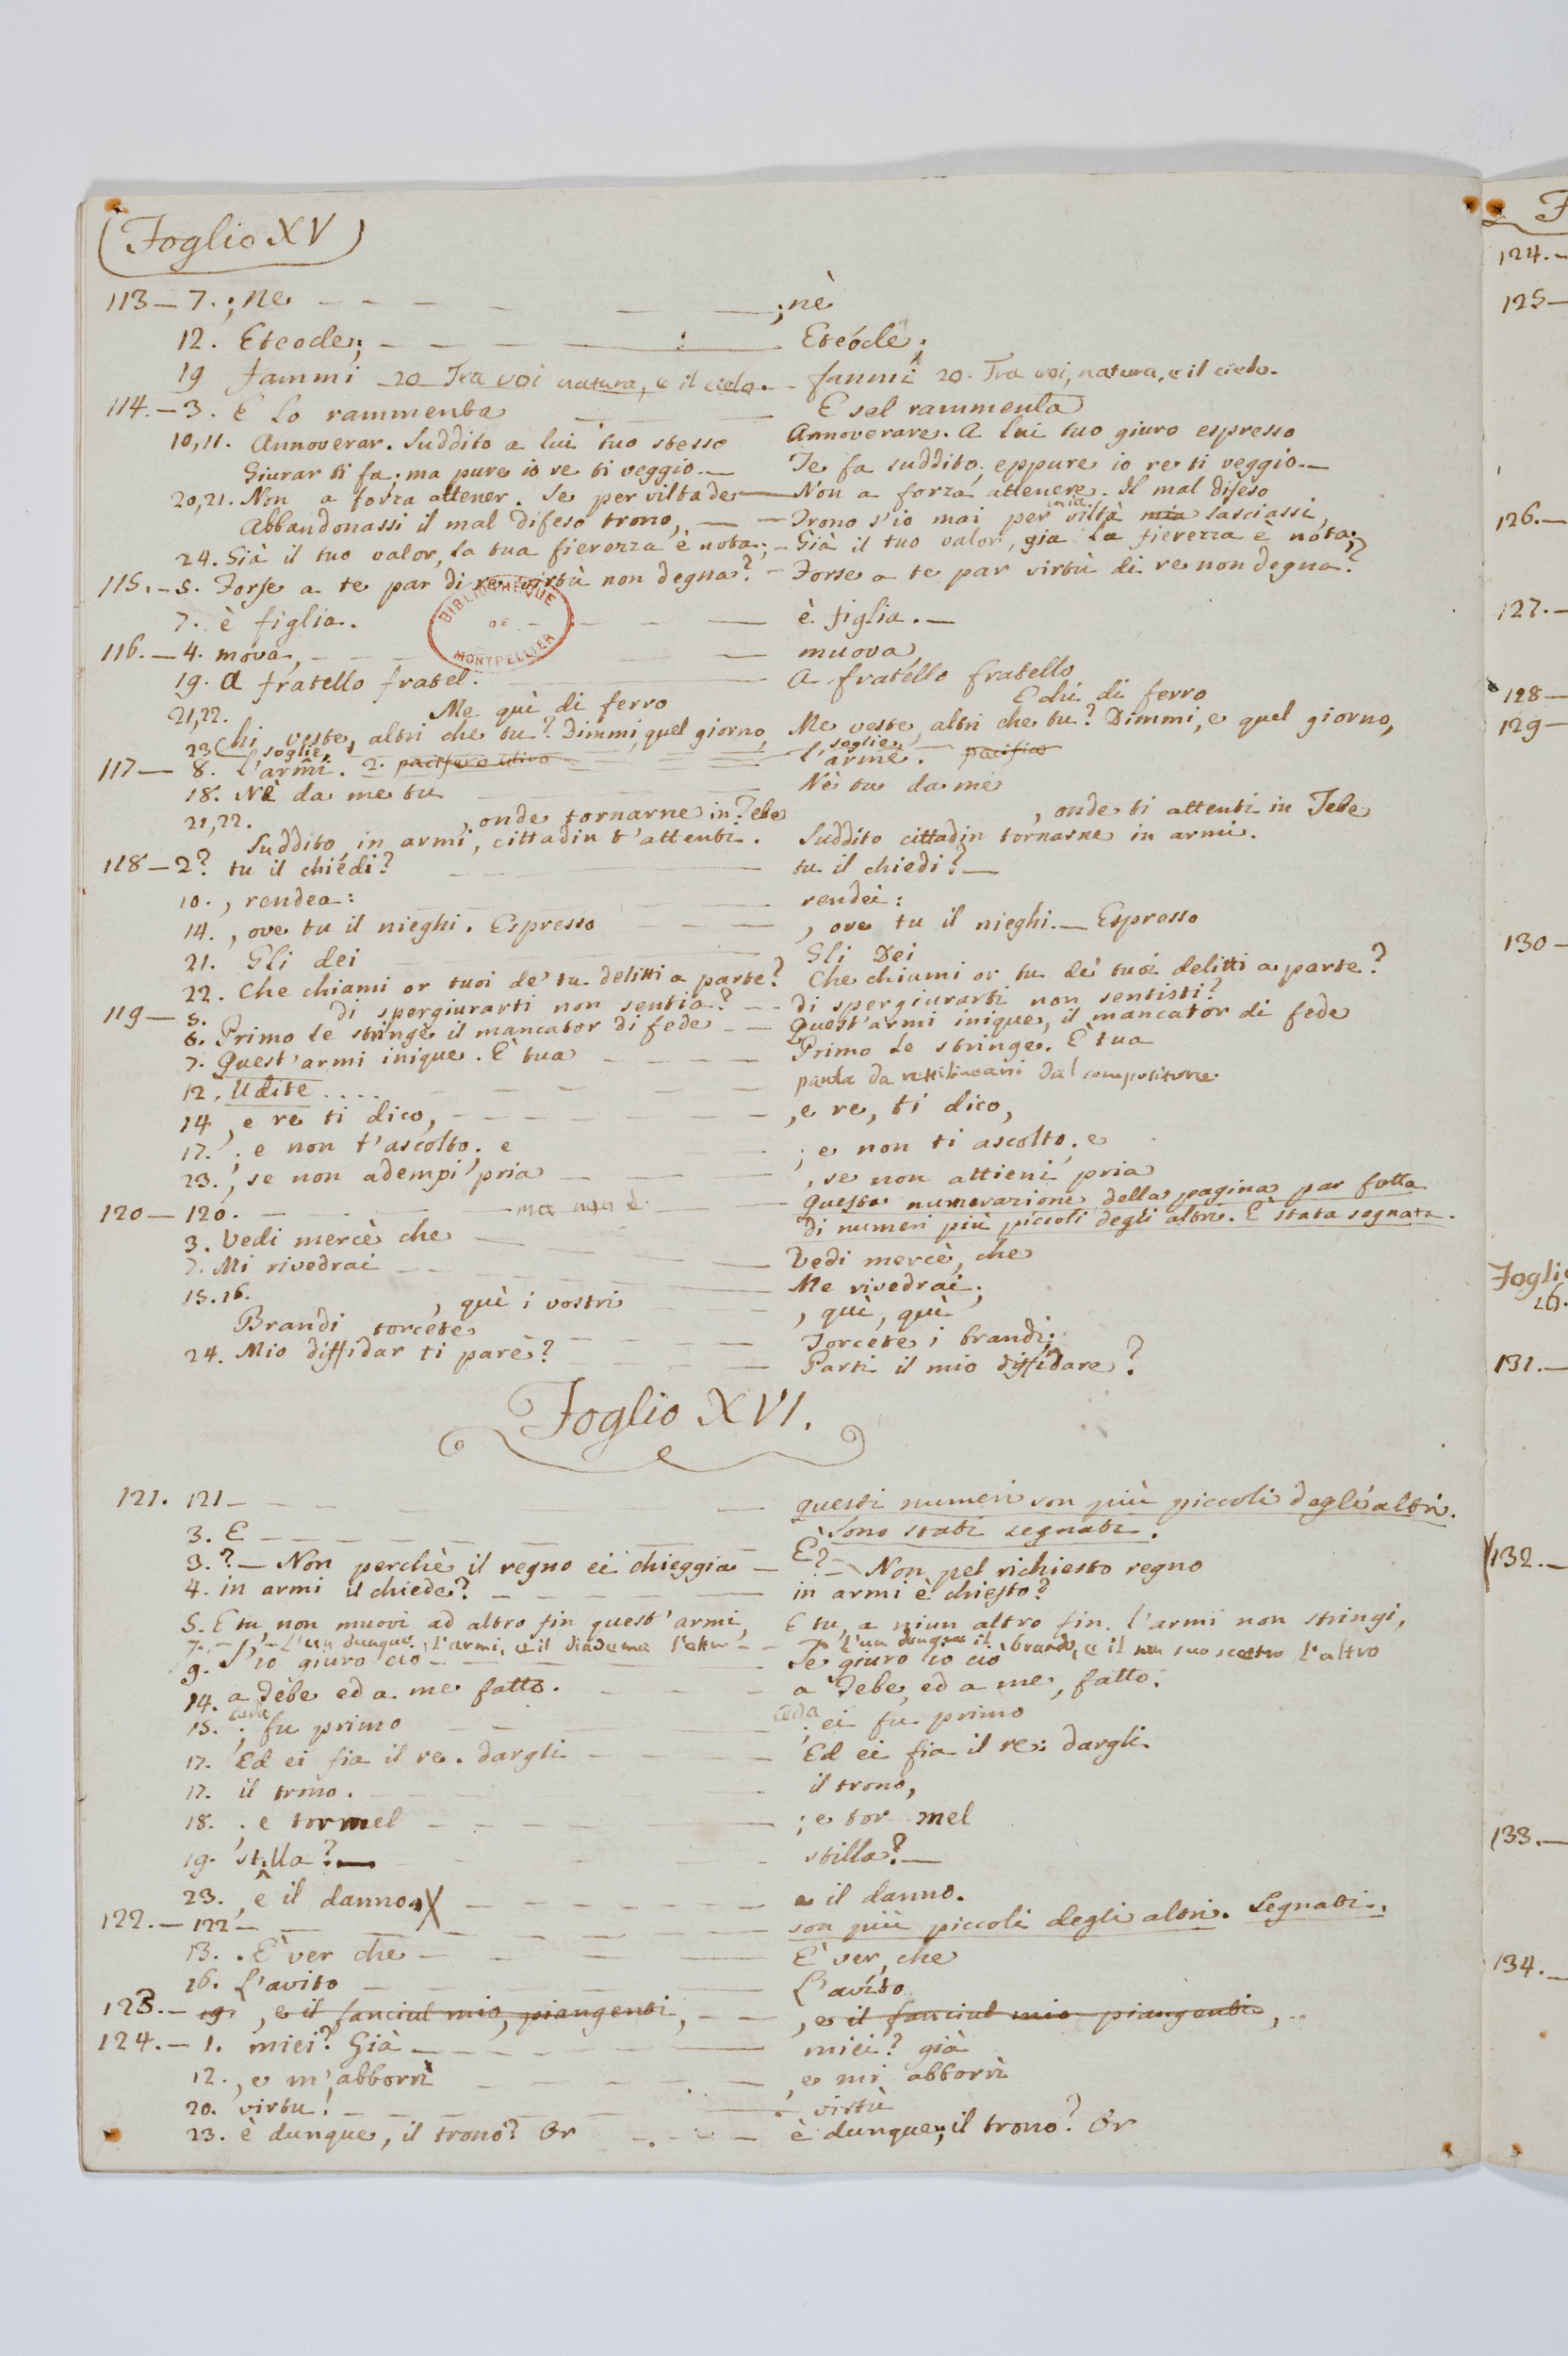 (Foglio XV)
113 — 7. ; ne — — — ; nè
12. Eteocle; — — — Eteócle;
19 fammi 20 Tra voi natura, e il cielo. — fammi 20. Tra voi, natura, e il cielo.
114. — 3. E lo rammenta — E sel rammenta
10, 11. Annoverar. Suddito a lui tuo stesso Annoverare. A lui tuo giuro espresso
Giurar ti fa; ma pure io re ti veggio. — Te fa suddito; eppure io re ti veggio. —
20, 21. Non a forza attener. Se per viltade — Non a forza attenere. Il mal difeso
Abbandonassi il mal difeso trono, — — Trono s'io mai per mia viltà mia lasciassi,
24. Già il tuo valor, la tua fierezza è nota; — Già il tuo valor, già la fierezza è nota;
115. — 5. Forse a te par di re virtù non degna? — Forse a te par virtù di re non degna?
BIBLIOTHEQUE DE MONTPELLIER
7. è figlia. — — è figlia. —
116. — 4. mova, — — muova,
19. A fratello fratel. — A fratello fratello
21, 22. Me quì di ferro E chi di ferro
23 Chi veste, altri che tu? Dimmi, quel giorno, Me veste, altri che tu? Dimmi, e quel giorno,
soglie, — — soglie, —
117 — 8. l'armi. 2. pacifero ulivo — l'arme. pacifico
18. Nè da me tu — Nè tu da me
21, 22. , onde tornarne in Tebe , onde ti attenti in Tebe
Suddito, in armi, cittadin t'attenti. Suddito cittadin tornarne in armi.
118 — 2? tu il chiedi? — tu il chiedi? —
10. , rendea: — rendei:
14. , ove tu il nieghi. Espresso — — , ove tu il nieghi. — Espresso
21. Gli dei — Gli Dei
22. Che chiami or tuoi de' tu delitti a parte? Che chiami or tu de' tuoi delitti a parte?
119 — 5. di spergiurarti non sentia? — — di spergiurarti non sentisti?
6. Primo le stringe il mancator di fede — — Quest'armi inique, il mancator di fede
7. Quest'armi inique. È tua — — Primo le stringe. È tua
12. Udite . . . . — — dal compositore
14 , e re ti dico, — — , e re, ti dico,
17. ; e non t'ascolto; e — ; e non ti ascolto; e
23. , se non adempi pria — — , se non attieni pria
120 — 120. — — ma non è — — Questa numerazione della pagina par fatta
di numeri più piccoli degli altri. È stata segnata.
3. Vedi mercè che — — Vedi mercè, che
7. Mi rivedrai — — Me rivedrai;
15. 16. , quì i vostri — — , quì, quì
Brandi torcete — — Torcete i brandi;
24. Mio diffidar ti pare? — — Parti il mio diffidare?
Foglio XVI.
121. 121 — — — questi numeri son più piccoli degli altri.
Sono stati segnati.
3. E — — — È
3. ? — Non perchè il regno ei chieggia — ? — Non pel richiesto regno
4. in armi il chiede? — — in armi è chiesto?
5. E tu, non muovi ad altro fin quest'armi, E tu, a niun altro fin l'armi non stringi,
7. — L'un dunque l'armi, e il diadema l'altro — — L'un dunque il brando, e il non suo scettro l'altro
9. S'io giuro ciò — — Se giuro io ciò
14. a Tebe ed a me fatto. — — a Tebe, ed a me, fatto.
15. ceda; fu primo — — ceda; ei fu primo
17. Ed ei fia il re. dargli — — Ed ei fia il re: dargli
17. il trono. — — il trono,
18. ; e tormel — — ; e tor mel
19. stilla? — — stilla? —
23. , e il danno. X — — e il danno.
122. — 122 — — son più piccoli degli altri. Segnati.
13. . È ver che — — È ver, che
16. L'avito — — L'avíto
123. — 19. , e il fanciul mio, piangenti, — — , e il fanciul mio piangenti, —
124. — 1. miei? Già — — miei? già
12. , e m'abborrì — — , e mi abborrì
20. virtu! — — virtù
23. è dunque, il trono? Or — — è dunque, il trono? Or
F
124. —
125 —
126. —
127. —
128 —
129 —
130 —
Foglio
16.
131. —
132. —
133. —
134. —